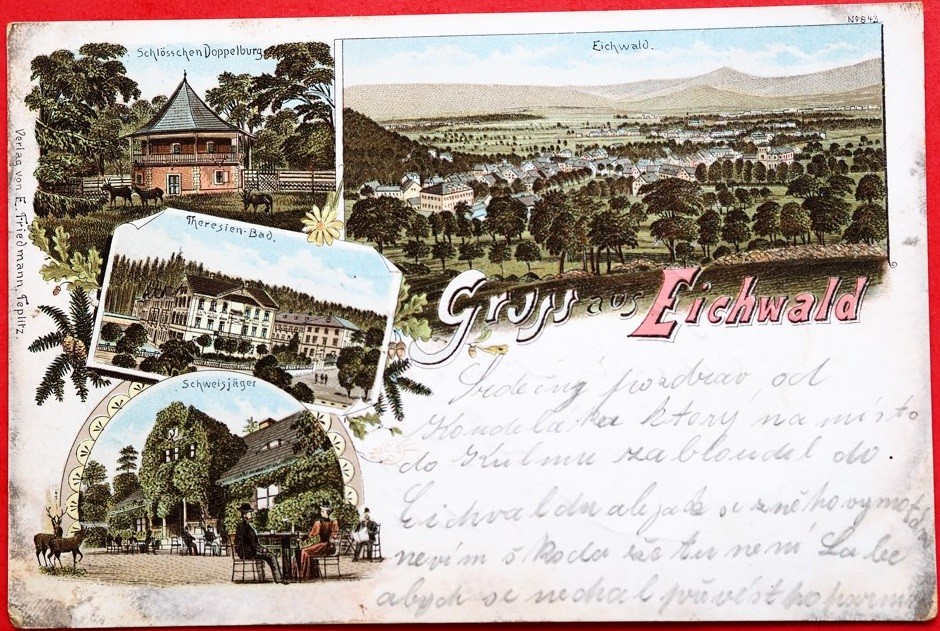 No 843
Schlösschen Doppelburg.
Eichwald.
Verlag von E. Friedmann, Teplitz.
Theresien-Bad.
Gruss aus Eichwald
Schweisjäger
Srdečný pozdrav od
který na místo
do Kulmu zabloudil do
Eichvaldu ale jak se z něho vymotám
nevím škoda že tu není Labe
abych se nechal převést ho parní